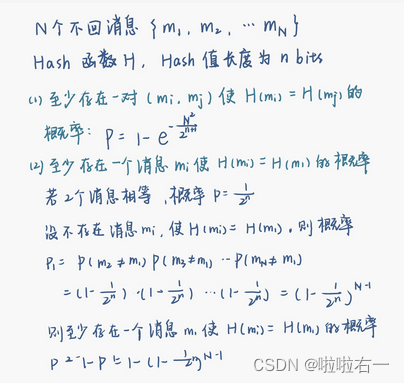 N个不同消息 {m₁, m₂, … m_N}
Hash 函数 H, Hash 值长度为 n bits
(1) 至少存在一对 (mi, mj) 使 H(mi) = H(mj) 的
概率: P = 1 - e^{-\frac{N²}{2^{n+1}}}
(2) 至少存在一个消息 mi 使 H(mi) = H(m₁) 的概率
若2个消息相等, 概率 P = \frac{1}{2^n}
设不存在消息 mi, 使 H(mi) = H(m₁), 则概率
P₁ = P(m₂ ≠ m₁) P(m₃ ≠ m₁) … P(m_N ≠ m₁)
= (1 - \frac{1}{2^n}) · (1 - \frac{1}{2^n}) … (1 - \frac{1}{2^n}) = (1 - \frac{1}{2^n})^{N-1}
则至少存在一个消息 mi 使 H(mi) = H(m₁) 的概率
P = 1 - P₁ = 1 - (1 - \frac{1}{2^n})^{N-1}
CSDN @啦啦右一